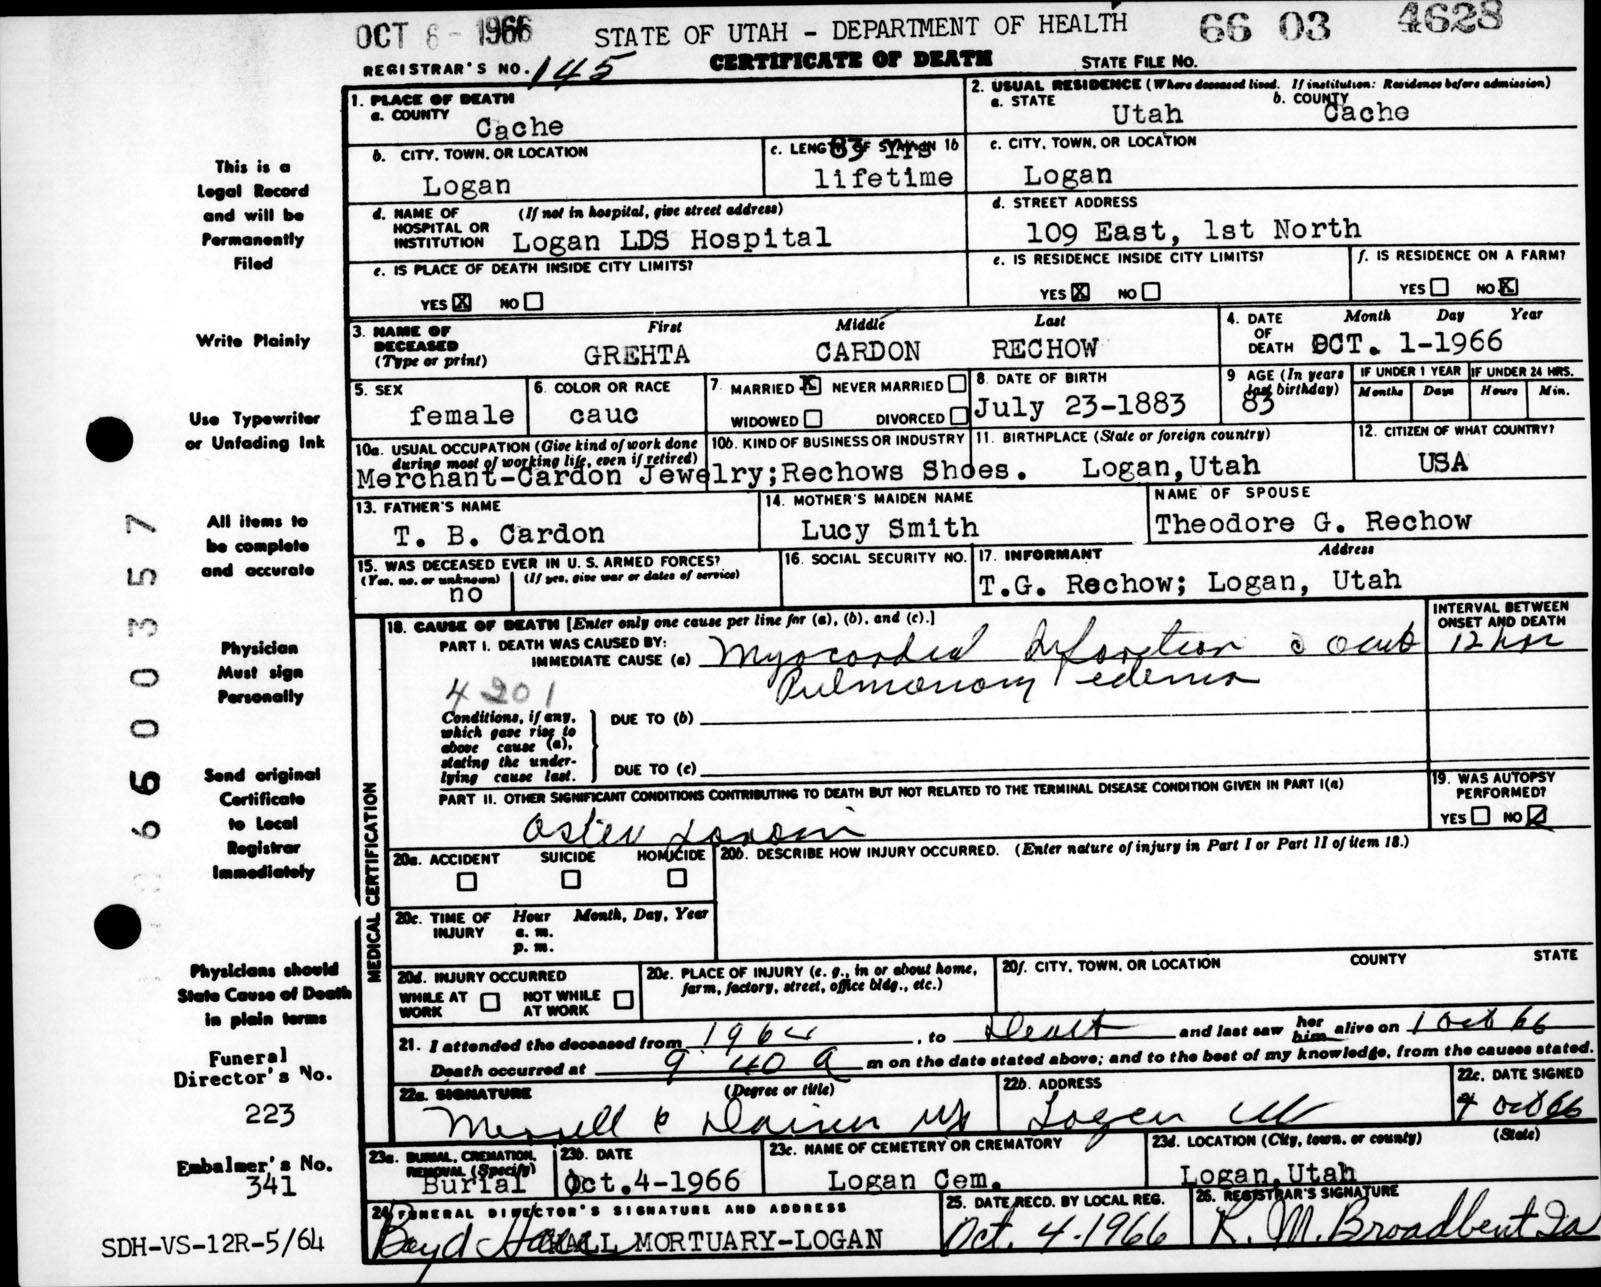 OCT 6 - 1966 STATE OF UTAH - DEPARTMENT OF HEALTH 66 03 4628
REGISTRAR'S NO. 145 CERTIFICATE OF DEATH STATE FILE NO.
1. PLACE OF DEATH
a. COUNTY
Cache
2. USUAL RESIDENCE (Where deceased lived. If institution: Residence before admission)
a. STATE b. COUNTY
Utah Cache
b. CITY, TOWN, OR LOCATION
Logan
c. LENGTH OF STAY IN 1b
83 Yrs
lifetime
c. CITY, TOWN, OR LOCATION
Logan
d. NAME OF HOSPITAL OR INSTITUTION (If not in hospital, give street address)
Logan LDS Hospital
d. STREET ADDRESS
109 East, 1st North
e. IS PLACE OF DEATH INSIDE CITY LIMITS?
YES X NO
e. IS RESIDENCE INSIDE CITY LIMITS?
YES X NO
f. IS RESIDENCE ON A FARM?
YES NO X
3. NAME OF DECEASED (Type or print)
First Middle Last
GREHTA CARDON RECHOW
4. DATE OF DEATH
Month Day Year
OCT. 1-1966
5. SEX
female
6. COLOR OR RACE
cauc
7. MARRIED X NEVER MARRIED
WIDOWED DIVORCED
8. DATE OF BIRTH
July 23-1883
9 AGE (In years last birthday)
83
IF UNDER 1 YEAR
Months Days
IF UNDER 24 HRS.
Hours Min.
10a. USUAL OCCUPATION (Give kind of work done during most of working life, even if retired)
10b. KIND OF BUSINESS OR INDUSTRY
Merchant-Cardon Jewelry;Rechows Shoes.
11. BIRTHPLACE (State or foreign country)
Logan,Utah
12. CITIZEN OF WHAT COUNTRY?
USA
13. FATHER'S NAME
T. B. Cardon
14. MOTHER'S MAIDEN NAME
Lucy Smith
NAME OF SPOUSE
Theodore G. Rechow
15. WAS DECEASED EVER IN U. S. ARMED FORCES?
(Yes, no, or unknown) (If yes, give war or dates of service)
no
16. SOCIAL SECURITY NO.
17. INFORMANT Address
T.G. Rechow; Logan, Utah
MEDICAL CERTIFICATION
18. CAUSE OF DEATH [Enter only one cause per line for (a), (b), and (c).]
INTERVAL BETWEEN ONSET AND DEATH
PART I. DEATH WAS CAUSED BY:
IMMEDIATE CAUSE (a) Myocardial Infarction 12 hrs
Pulmonary edema
4201
Conditions, if any, which gave rise to above cause (a), stating the underlying cause last.
DUE TO (b)
DUE TO (c)
PART II. OTHER SIGNIFICANT CONDITIONS CONTRIBUTING TO DEATH BUT NOT RELATED TO THE TERMINAL DISEASE CONDITION GIVEN IN PART I(a)
19. WAS AUTOPSY PERFORMED?
YES NO
20a. ACCIDENT SUICIDE HOMICIDE
20b. DESCRIBE HOW INJURY OCCURRED. (Enter nature of injury in Part I or Part II of item 18.)
20c. TIME OF INJURY Hour Month, Day, Year
a. m.
p. m.
20d. INJURY OCCURRED
WHILE AT WORK NOT WHILE AT WORK
20e. PLACE OF INJURY (e. g., in or about home, farm, factory, street, office bldg., etc.)
20f. CITY, TOWN, OR LOCATION COUNTY STATE
21. I attended the deceased from 1964, to Death and last saw her him alive on 1 Oct 66
Death occurred at 9 40 A m on the date stated above; and to the best of my knowledge, from the causes stated.
22a. SIGNATURE (Degree or title)
Merrill C
22b. ADDRESS
Logan
22c. DATE SIGNED
Oct 66
23a. BURIAL, CREMATION, REMOVAL (Specify)
Burial
23b. DATE
Oct.4-1966
23c. NAME OF CEMETERY OR CREMATORY
Logan Cem.
23d. LOCATION (City, town, or county) (State)
Logan,Utah
24 FUNERAL DIRECTOR'S SIGNATURE AND ADDRESS
Boyd HALL MORTUARY-LOGAN
25. DATE RECD. BY LOCAL REG.
Oct. 4-1966
26. REGISTRAR'S SIGNATURE
R. M. Broadbent
This is a
Legal Record
and will be
Permanently
Filed
Write Plainly
Use Typewriter
or Unfading Ink
All items to
be complete
and accurate
Physician
Must sign
Personally
Send original
Certificate
to Local
Registrar
Immediately
Physicians should
State Cause of Death
in plain terms
Funeral
Director's No.
223
Embalmer's No.
341
SDH-VS-12R-5/64
6600357